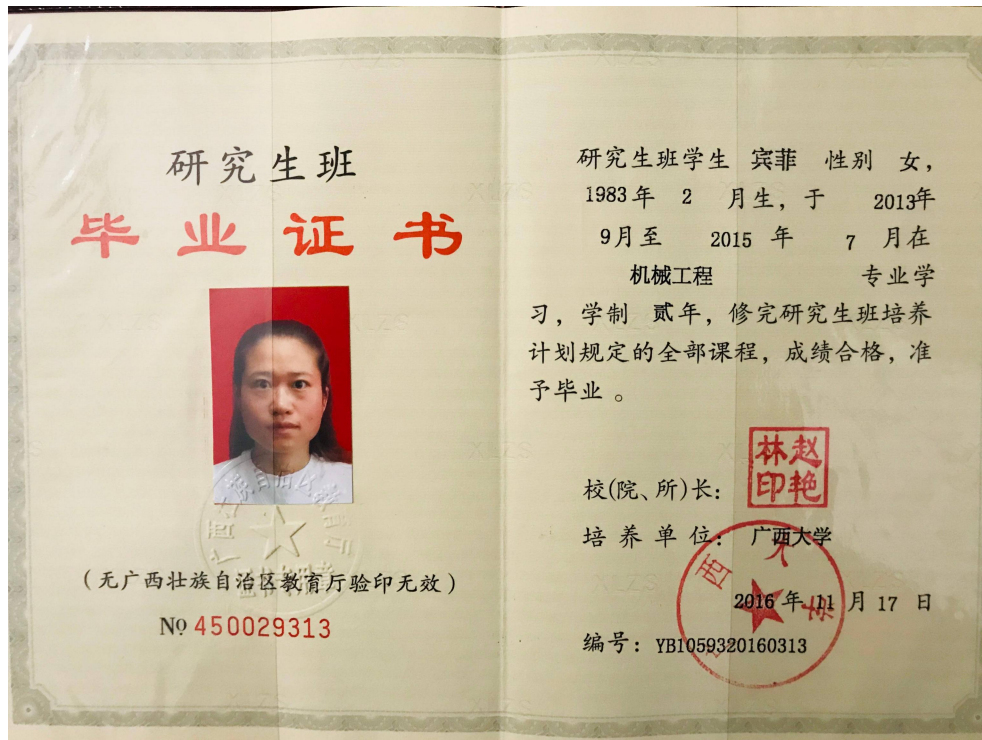 研究生班
毕业证书
(无广西壮族自治区教育厅验印无效)
№ 450029313
研究生班学生 宾菲 性别 女，
1983年 2 月生，于 2013年
9月至 2015 年 7 月在
机械工程 专业学
习，学制 贰年，修完研究生班培养
计划规定的全部课程，成绩合格，准
予毕业。
校(院、所)长：
赵艳林印
培养单位：广西大学
2016 年 11 月 17 日
编号：YB1059320160313